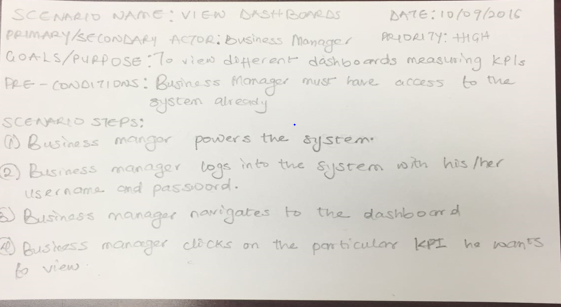 SCENARIO NAME: VIEW DASHBOARDS DATE: 10/09/2016
PRIMARY/SECONDARY ACTOR: Business Manager PRIORITY: HIGH
GOALS/PURPOSE: To view different dashboards measuring KPIs
PRE-CONDITIONS: Business Manager must have access to the
system already
SCENARIO STEPS:
(1) Business mangor powers the system.
(2) Business manager logs into the system with his/her
username and password.
(3) Business manager navigates to the dashboard
(4) Business manager clicks on the particular KPI he wants
to view.